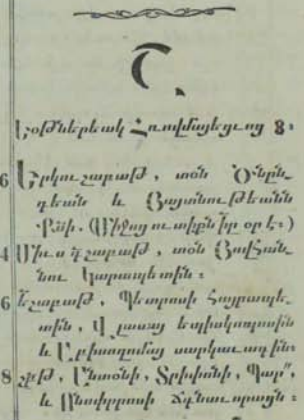 Շ.
Եօթներեակ Հռովմայեցւոց 8։
6 Երկուշաբաթ, տօն Ծնըն-
դեան և Յայտնութեանն
Քսի. (Միջոց ուտիքն իր օր է։)
4 Միւս դշաբաթ, տօն Յովհան-
նու Կարապետին։
6 եշաբաթ, Պետրոսի հայրապե-
տին, Վլասայ եպիսկոպոսին
և Աբիսողոմայ սարկաւագին։
8 շբթ, Անտօնի, Տրիփոնի, Պար՟,
և Ոնոփրոսի ճգնաւորացն։